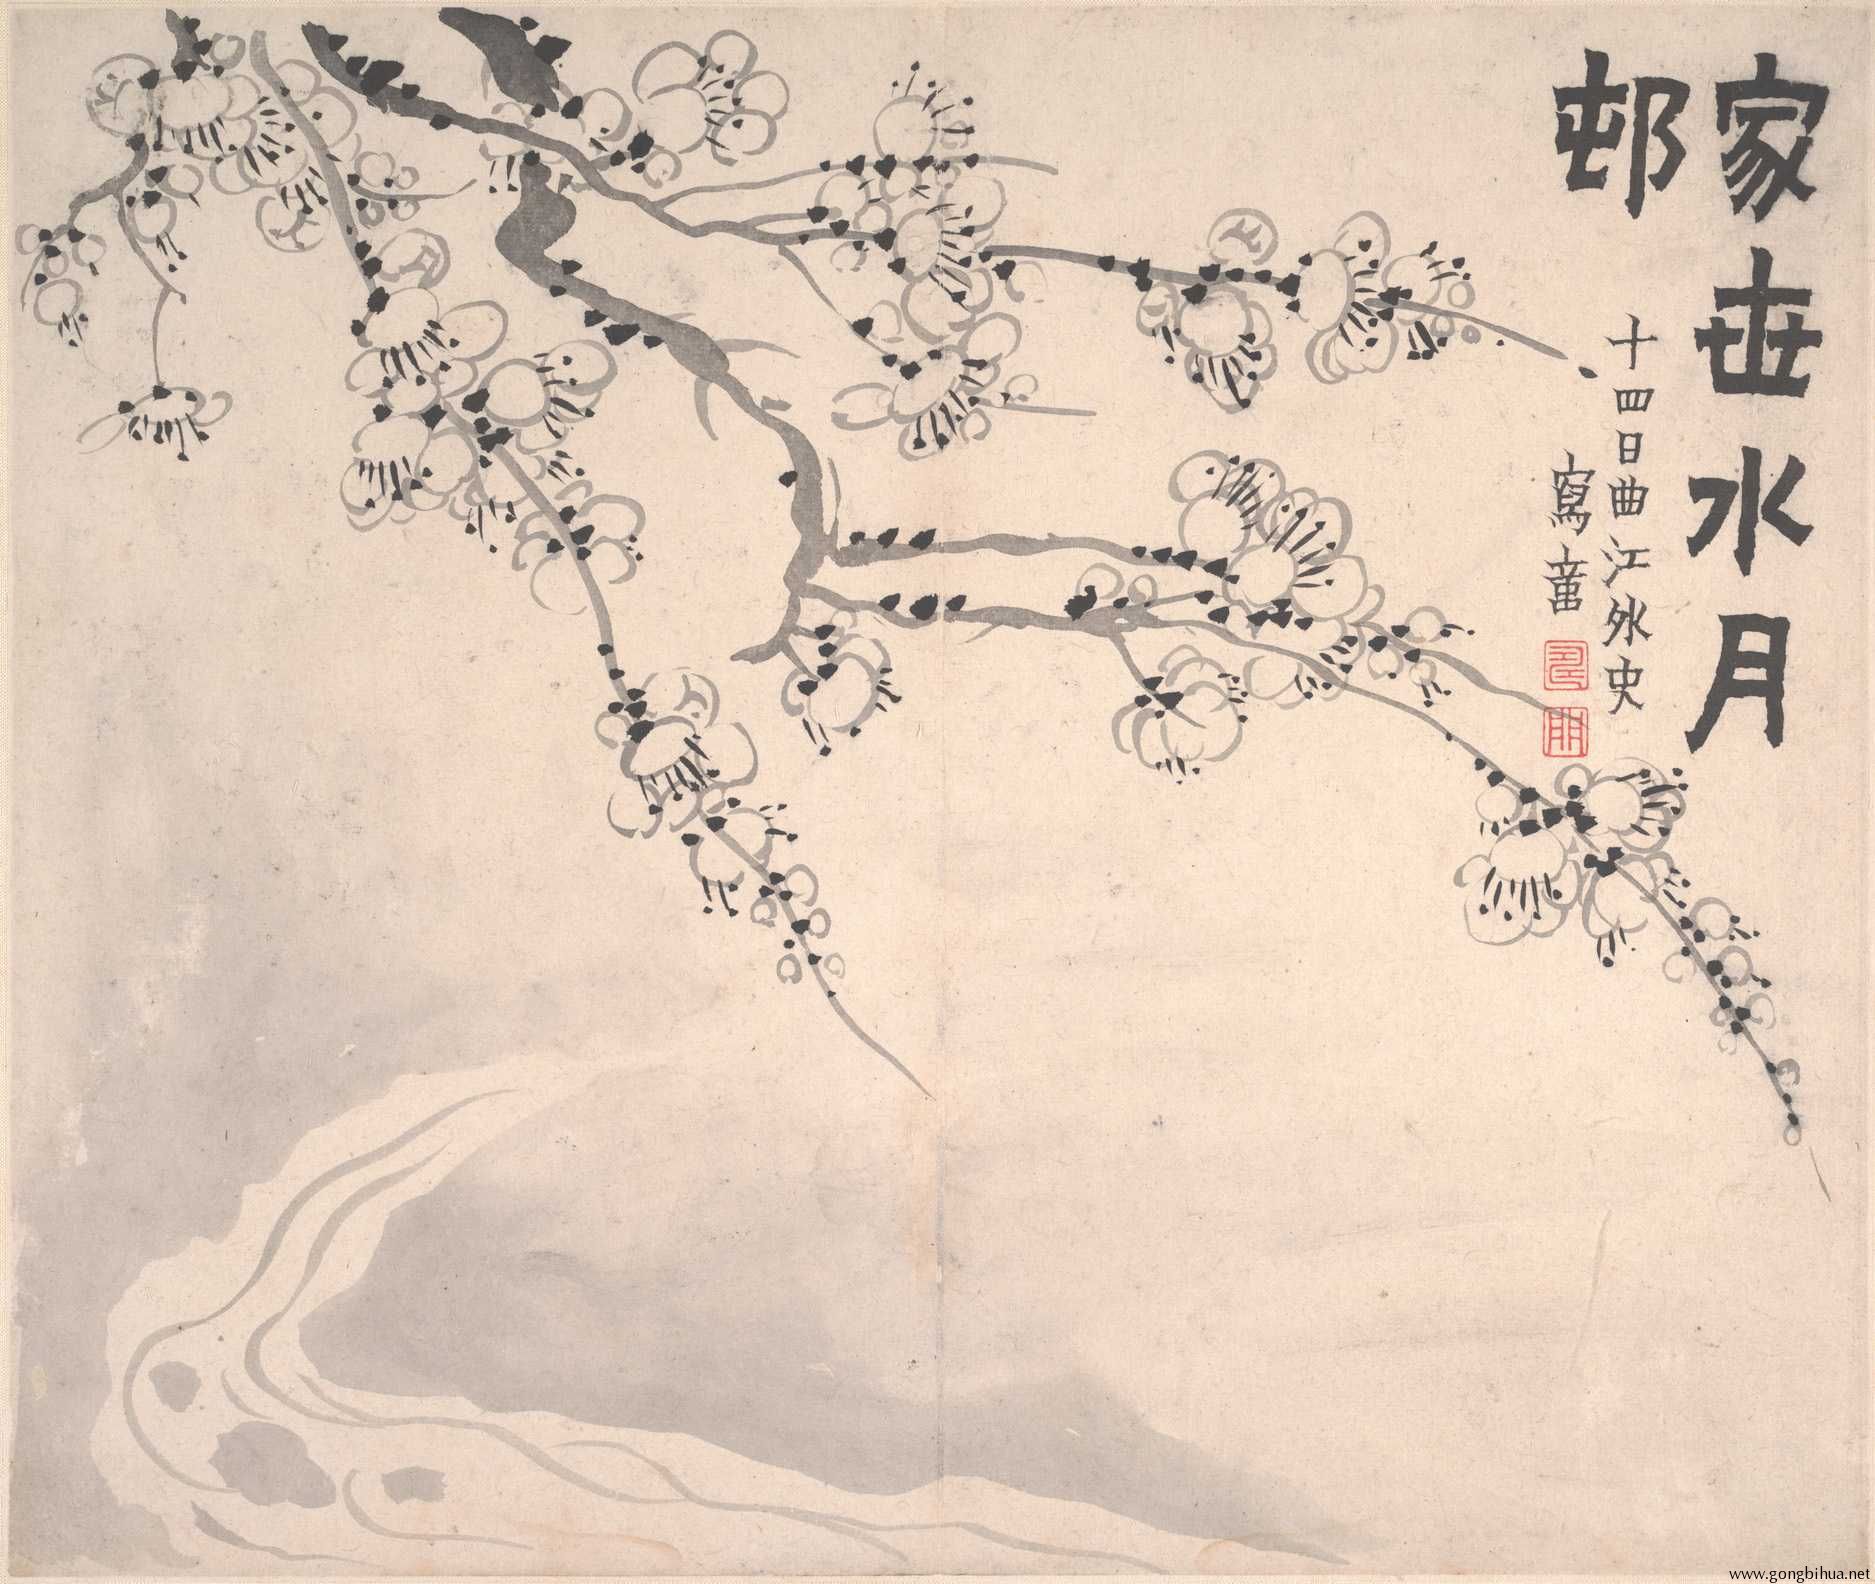 家世水月
邨
十四日曲江外史
寫
www.gongbihua.net